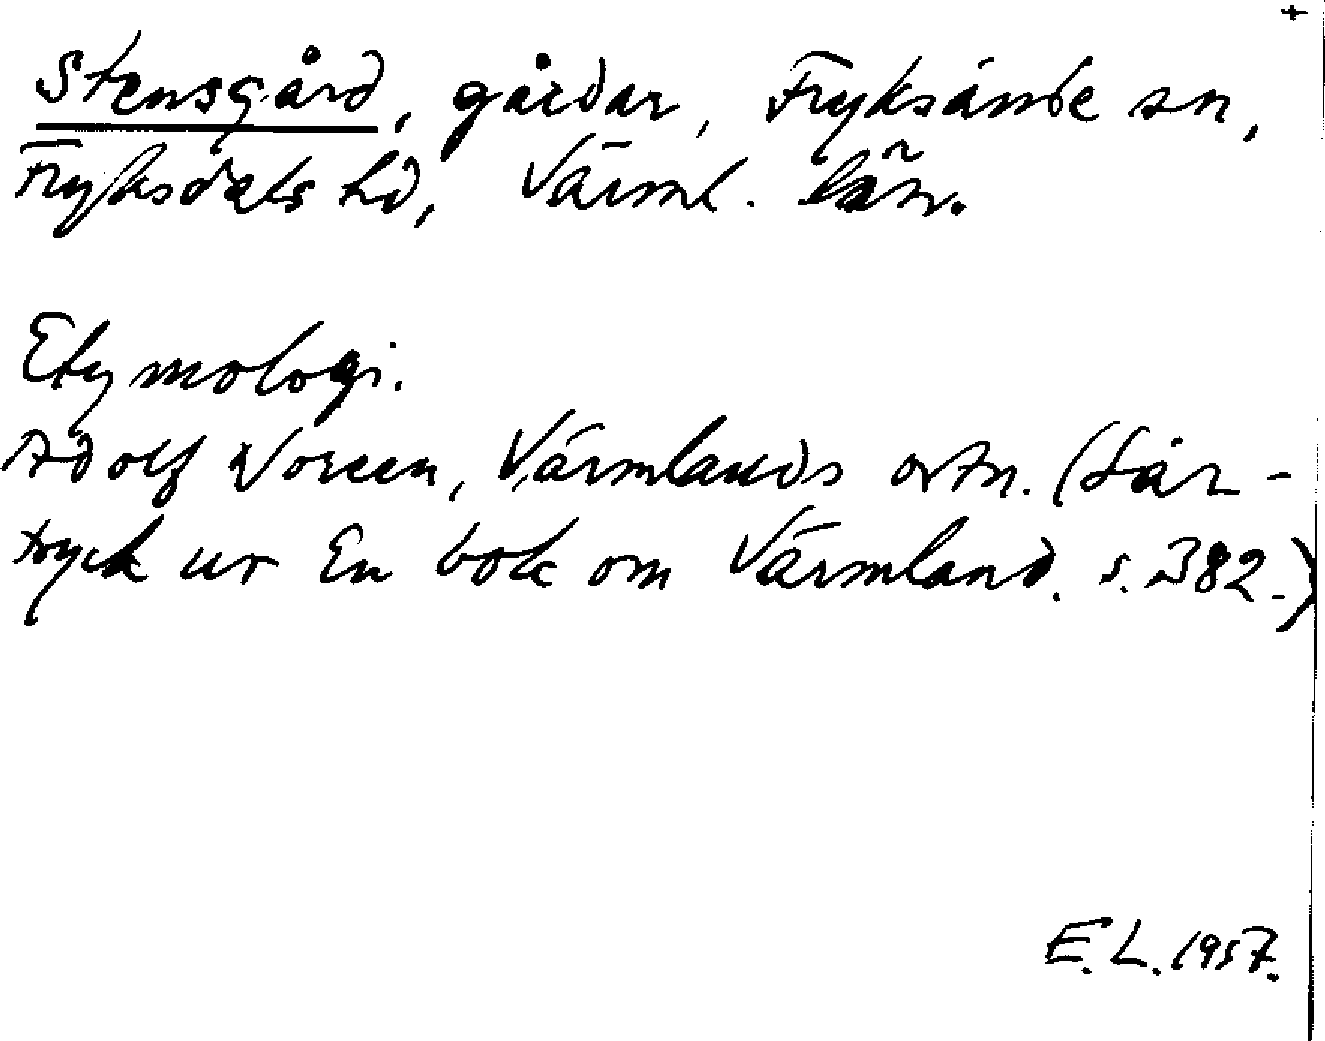 Stensgård, gårdar, Fryksände sn,
Fryksdals hd, Värml. län.
Etymologi.
Adolf Noreen, Värmlands ortn. (Sär-
tryck ur En bok om Värmland. s. 382.)
E. L. 1957.